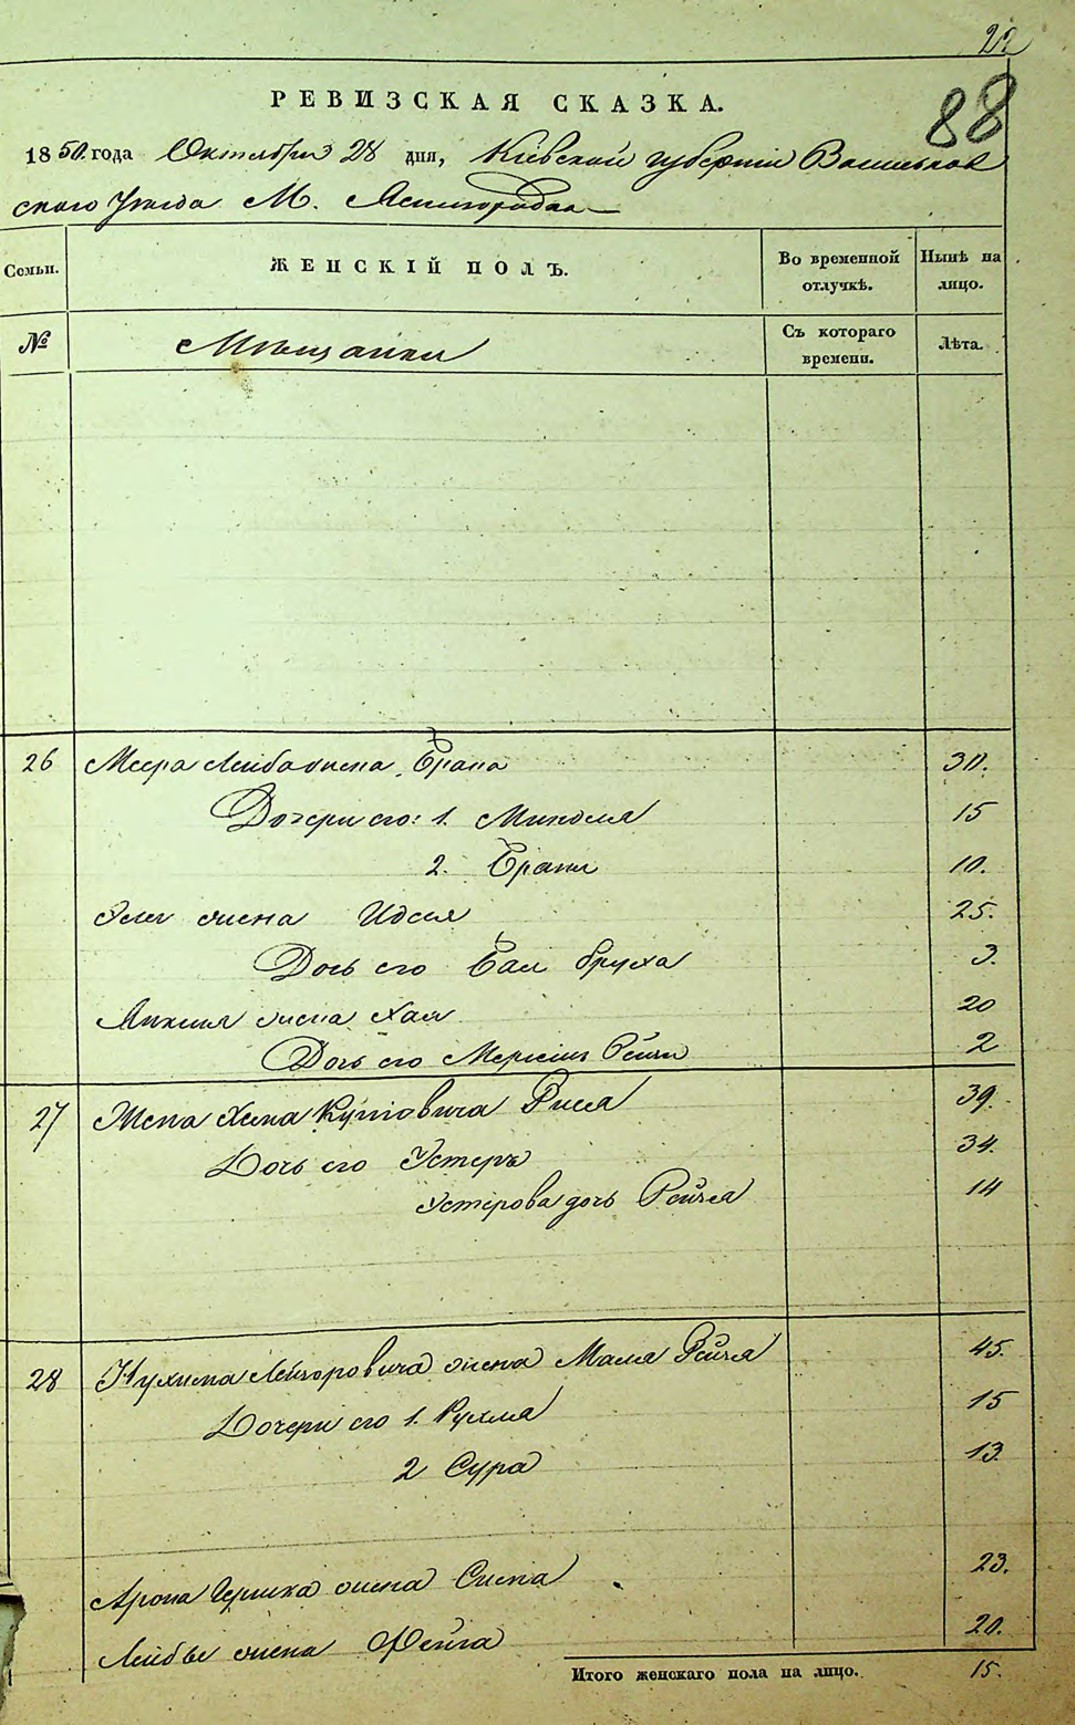 22
88
РЕВИЗСКАЯ СКАЗКА.
1850 года Октября 28 дня, Кіевской губерніи Васильков
ского Уезда М. Ясногородка
Семьи. ЖЕНСКІЙ ПОЛЪ. Во временной отлучкѣ. Нынѣ на лицо.
№ Мѣщанки Съ котораго времени. Лѣта.
26 Меера Лейба жена Брана 30.
Дочери его: 1. Миколя 15
2. Брани 10.
жена Идея 25.
Дочь его Бал бруха 3.
жена Хая 20
Дочь его Рейзи 2
27 Жена Риея 39.
Дочь его Эстеръ 34.
Эстерова дочь Рейзя 14
28 Нухима Лейзоровича жена Маля Рейзя 45.
Дочери его 1. Рухля 15
2 Сура 13.
Арона Гершка жена Сима 23.
Лейбы жена Фейга 20.
Итого женскаго пола на лицо. 15.